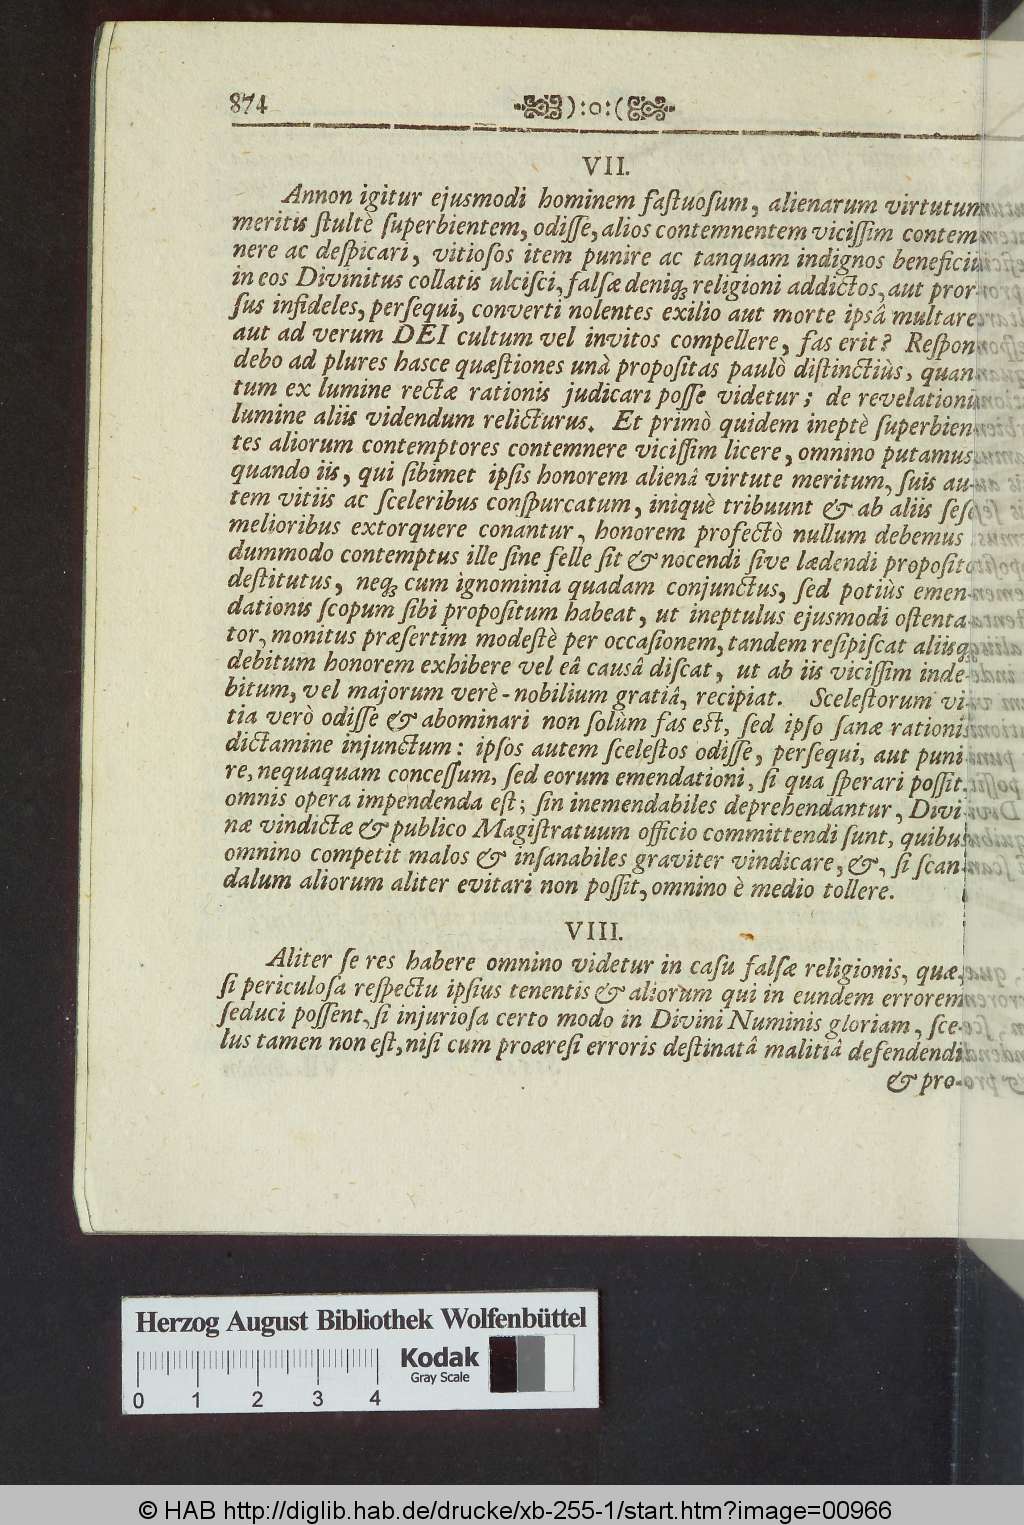 874 ):o:(
VII.
Annon igitur ejusmodi hominem faſtuoſum, alienarum virtutum
meritis ſtultè ſuperbientem, odiſſe, alios contemnentem viciſſim contem
nere ac deſpicari, vitioſos item punire ac tanquam indignos beneficiis
in eos Divinitus collatis ulciſci, falſæ deniq; religioni addictos, aut pror-
ſus infideles, perſequi, converti nolentes exilio aut morte ipsâ multare
aut ad verum DEI cultum vel invitos compellere, fas erit? Reſpon
debo ad plures hasce quæſtiones unà propoſitas paulò diſtinctiùs, quan
tum ex lumine rectæ rationis judicari poſſe videtur; de revelationis
lumine aliis videndum relicturus. Et primò quidem ineptè ſuperbien-
tes aliorum contemptores contemnere viciſſim licere, omnino putamus
quando iis, qui ſibimet ipſis honorem alienâ virtute meritum, ſuis au-
tem vitiis ac ſceleribus conſpurcatum, iniquè tribuunt & ab aliis ſeſe
melioribus extorquere conantur, honorem profectò nullum debemus
dummodo contemptus ille ſine felle ſit & nocendi ſive lædendi propoſito
deſtitutus, neq; cum ignominia quadam conjunctus, ſed potiùs emen-
dationis ſcopum ſibi propoſitum habeat, ut ineptulus ejusmodi oſtenta-
tor, monitus præſertim modeſtè per occaſionem, tandem reſipiſcat aliisq;
debitum honorem exhibere vel eâ causâ diſcat, ut ab iis viciſſim inde-
bitum, vel majorum verè-nobilium gratiâ, recipiat. Sceleſtorum vi-
tia verò odiſſe & abominari non ſolùm fas eſt, ſed ipſo ſanæ rationis
dictamine injunctum: ipſos autem ſceleſtos odiſſe, perſequi, aut puni
re, nequaquam conceſſum, ſed eorum emendationi, ſi qua ſperari poſſit,
omnis opera impendenda eſt; ſin inemendabiles deprehendantur, Divi
næ vindictæ & publico Magiſtratuum officio committendi ſunt, quibus
omnino competit malos & inſanabiles graviter vindicare, &, ſi ſcan-
dalum aliorum aliter evitari non poſſit, omnino è medio tollere.
VIII.
Aliter ſe res habere omnino videtur in caſu falſæ religionis, quæ,
ſi periculoſa reſpectu ipſius tenentis & aliorum qui in eundem errorem
ſeduci poſſent, ſi injurioſa certo modo in Divini Numinis gloriam, ſce-
lus tamen non eſt, niſi cum proæreſi erroris deſtinatâ malitiâ defendendi
& pro-
Herzog August Bibliothek Wolfenbüttel
Kodak
Gray Scale
0 1 2 3 4
© HAB http://diglib.hab.de/drucke/xb-255-1/start.htm?image=00966